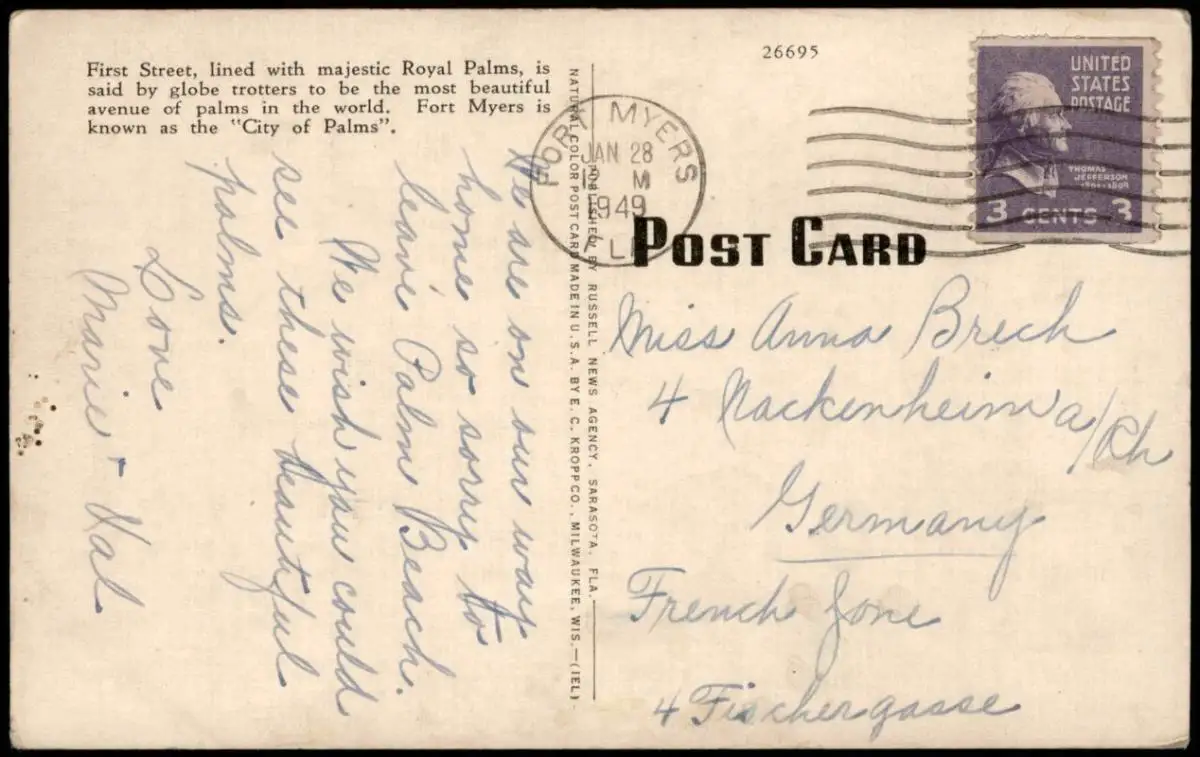 First Street, lined with majestic Royal Palms, is
said by globe trotters to be the most beautiful
avenue of palms in the world. Fort Myers is
known as the "City of Palms".
We are on our way
home so sorry to
leave Palm Beach.
We wish you could
see these beautiful
palms.
Love
Marie + Val
NATURAL COLOR POST CARD MADE IN U.S.A. BY E. C. KROPP CO., MILWAUKEE, WIS.—(IEL)
PUBLISHED BY RUSSELL NEWS AGENCY, SARASOTA, FLA.
26695
FORT MYERS
JAN 28
M
1949
FLA
UNITED
STATES
POSTAGE
THOMAS
JEFFERSON
1801-1809
3 CENTS 3
POST CARD
Miss Anna Brech
4 Nackenheim a/Rh
Germany
French Zone
4 Fischergasse